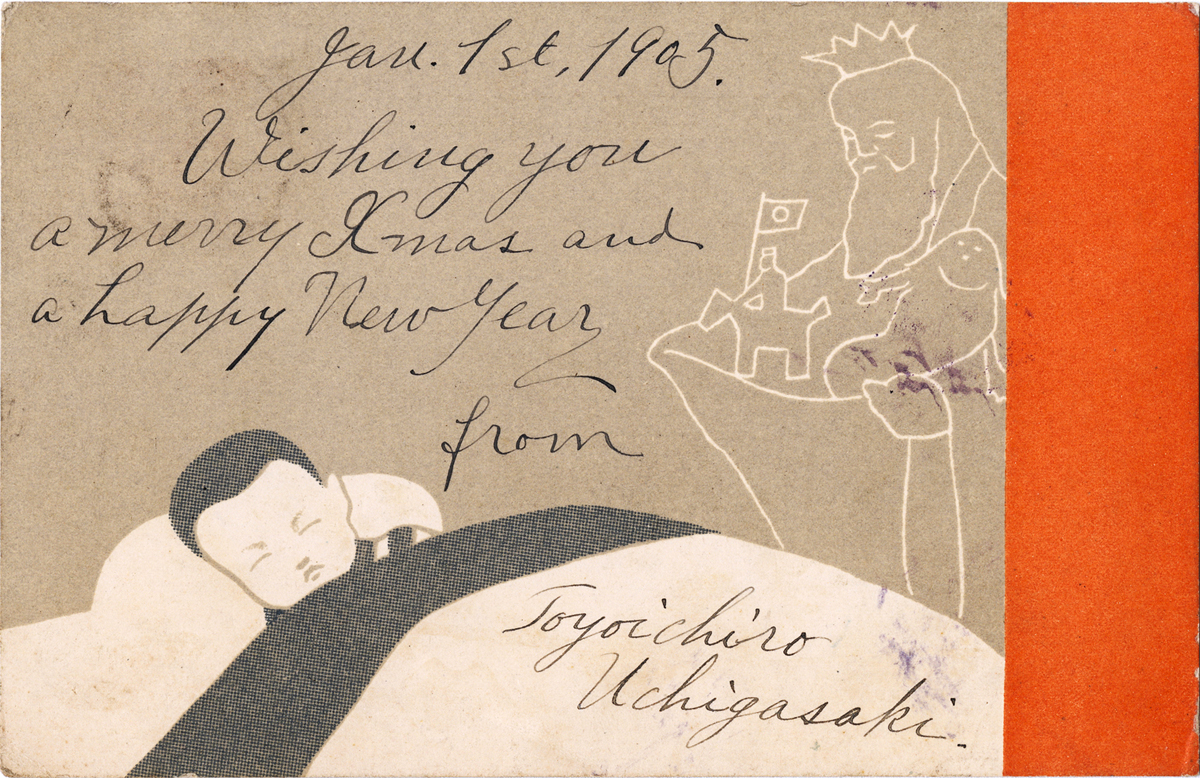 Jan. 1st, 1905.
Wishing you
a merry Xmas and
a happy New Year
from
Toyoichiro
Uchigasaki.